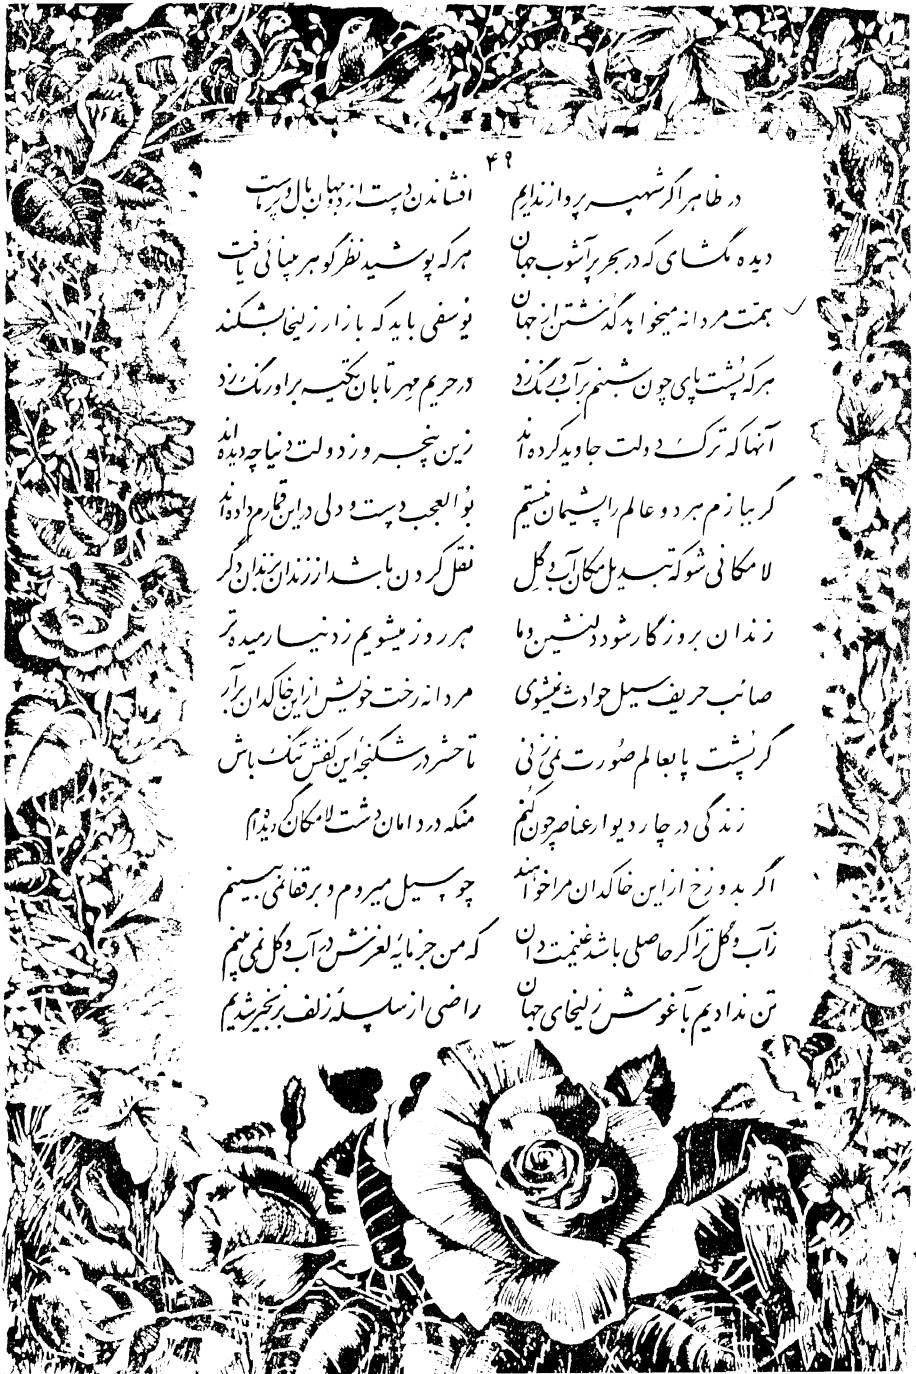 ۴۹
در ظاهر اگر شهپر پرواز نداریم افشاندن دست از دو جهان بال و پر ماست
دیده مگشای که در بحر پرآشوب جهان هرکه پوشید نظر گوهر بینائی یافت
همت مردانه میخواهد گذشتن از جهان یوسفی باید که بازار زلیخا بشکند
هرکه پشت پای چون شبنم بر آب و رنگ زد در حریم مهر تابان تکیه بر اورنگ زد
آنها که ترک دولت جاوید کرده‌اند زین پنج روز دولت دنیا چه دیده‌اند
گر ببازم هر دو عالم را پشیمان نیستم بوالعجب دست و دلی در این قمارم داده‌اند
لامکانی شو که تبدیل مکان آب و گل نقل کردن باشد از زندان بزندان دگر
زندان بروزگار شود دلنشین و ما هر روز میشویم ز دنیا رمیده‌تر
صائب حریف سیل حوادث نمیشوی مردانه رخت خویش از این خاکدان برآر
گر پشت پا بعالم صورت نمی‌زنی تا حشر در شکنجهٔ این کفش تنگ باش
زندگی در چار دیوار عناصر چون کنم منکه در دامان دشت لامکان گردیده‌ام
اگر بدوزخ از این خاکدان مرا خوانند چو سیل میروم و بر قفا نمی‌بینم
ز آب و گل ترا گر حاصلی باشد غنیمت دان که من جز مایهٔ لغزش در آب و گل نمی‌بینم
تن ندادیم بآغوش زلیخای جهان راضی از سلسلهٔ زلف بزنجیر شدیم